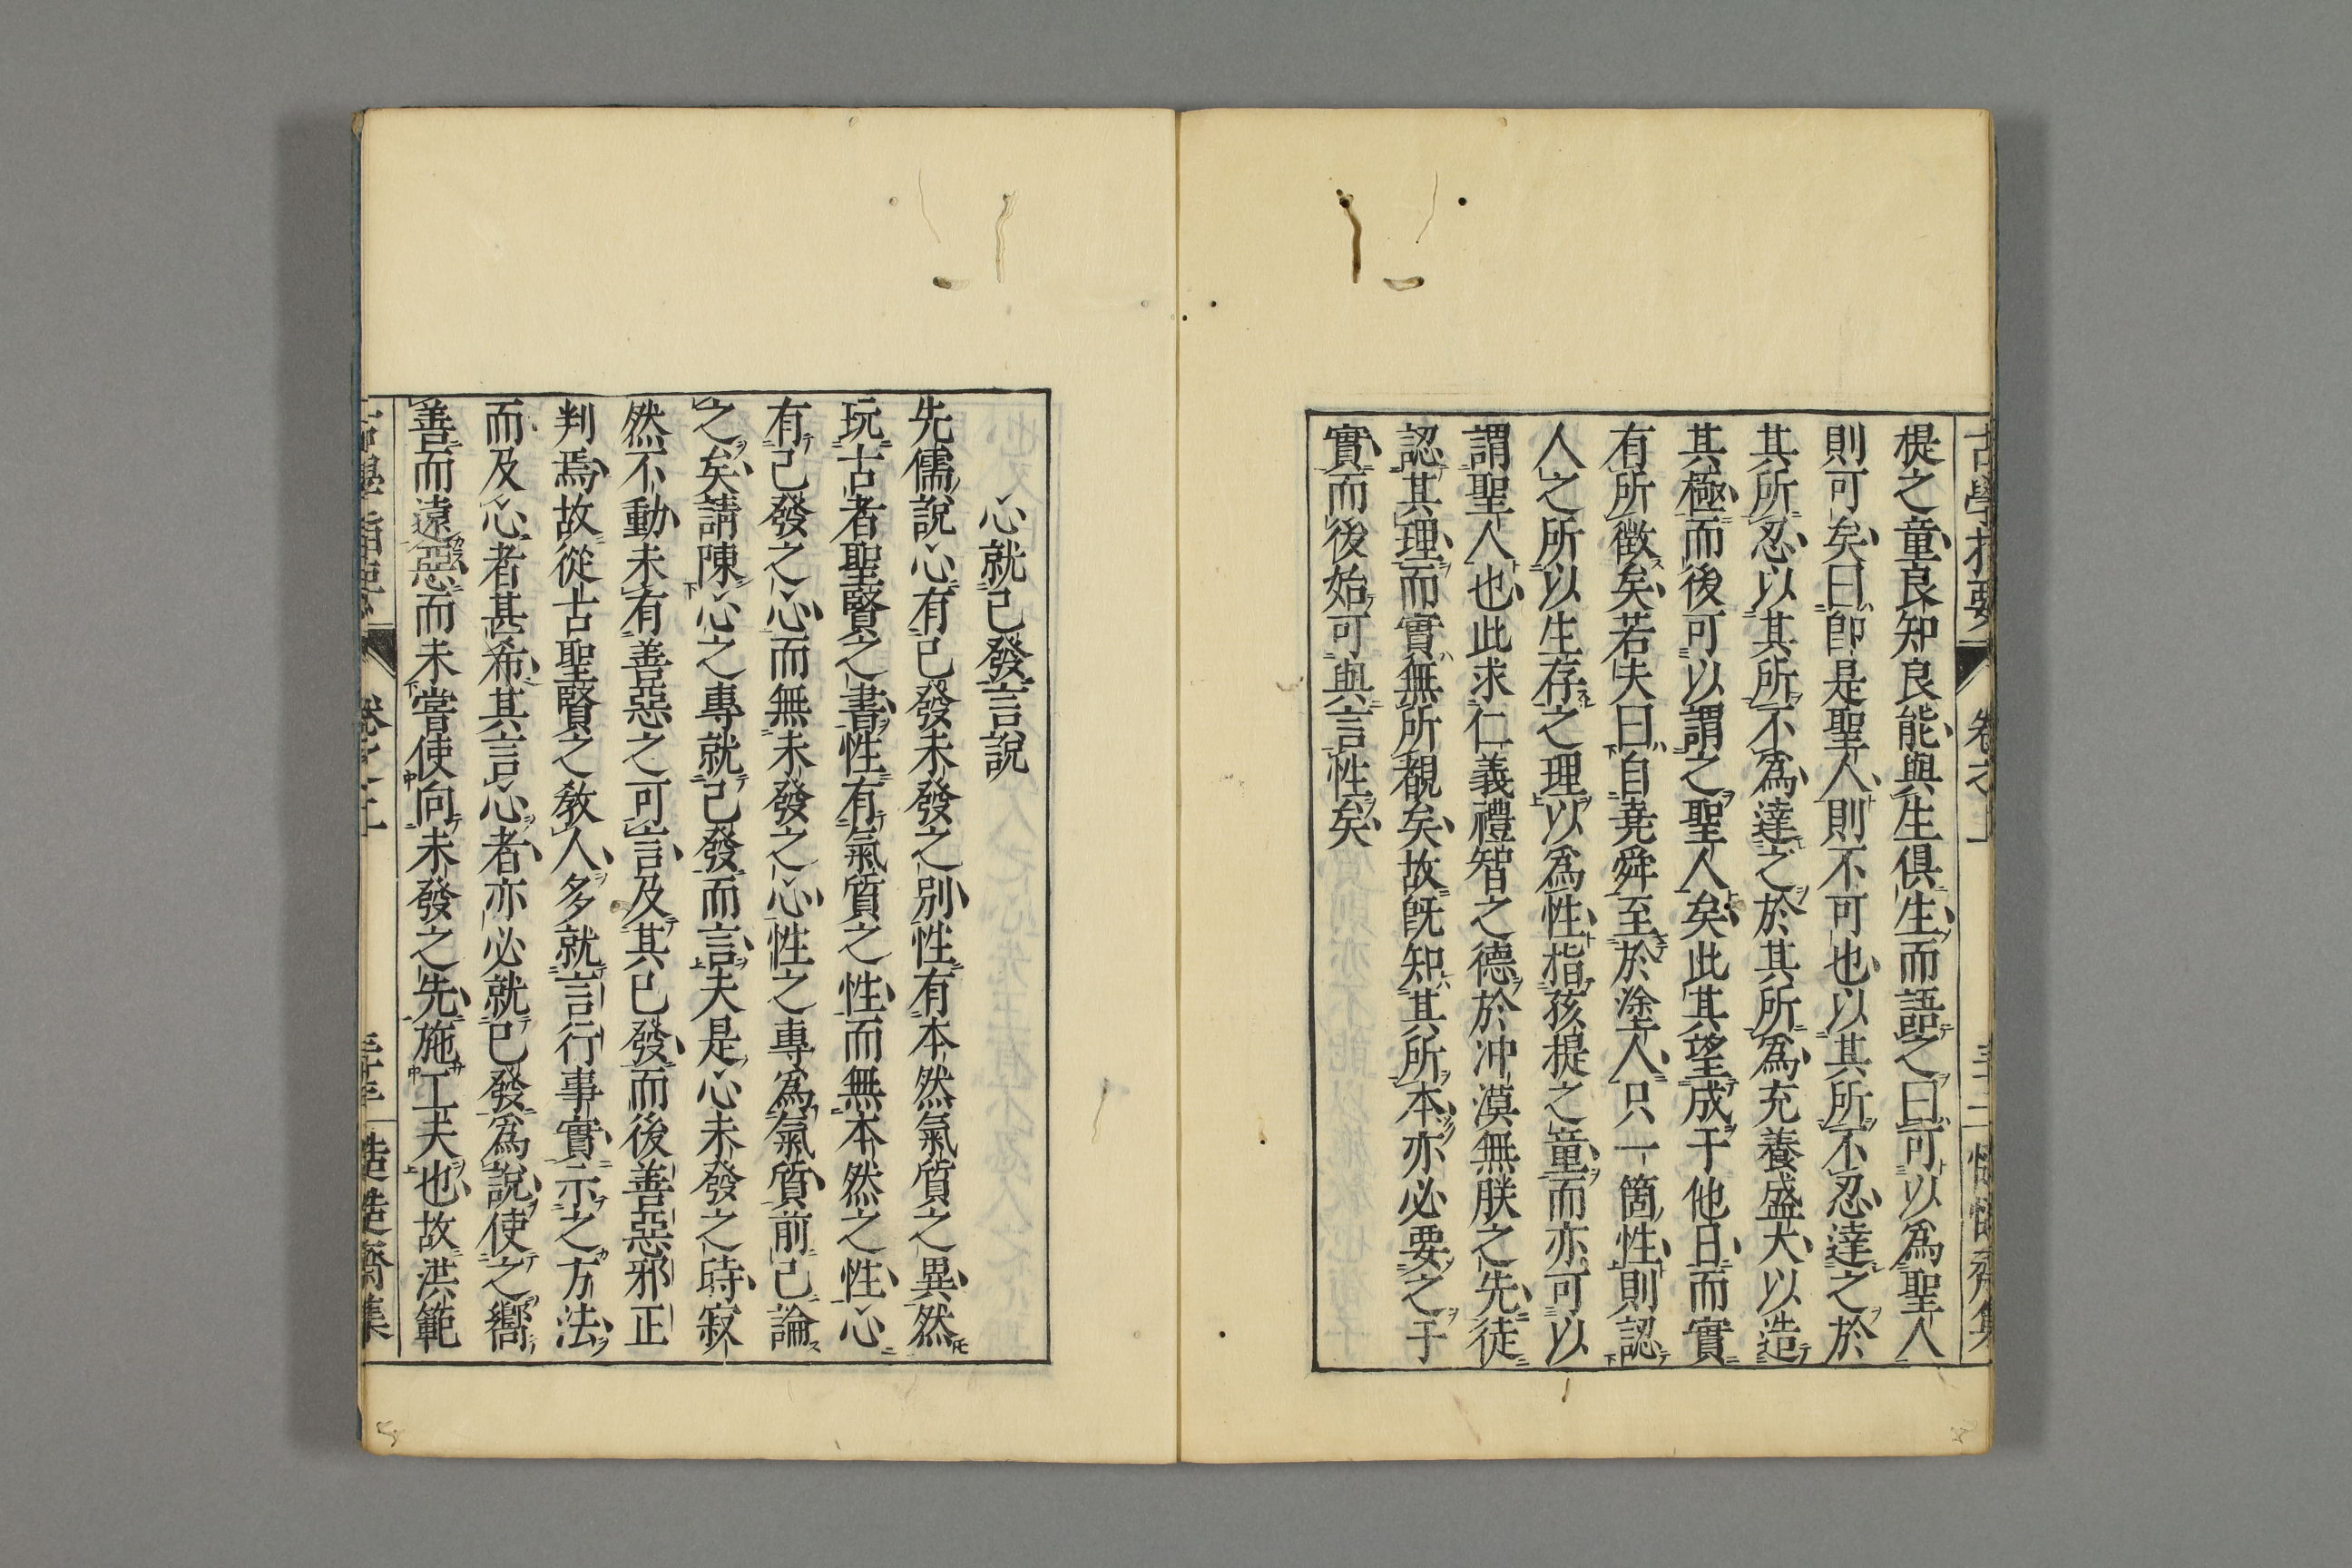 提之童良知良能與生俱生而語之曰可以爲聖人
則可矣曰卽是聖人則不可也以其所不忍達之於
其所忍以其所不爲達之於其所爲充養盛大以造
其極而後可以謂之聖人矣此其望成于他日而實
有所徵矣若夫曰自堯舜至於塗人只一箇性則認
人之所以生存之理以爲性指孩提之童而亦可以
謂聖人也此求仁義禮智之德於冲漠無朕之先徒
認其理而實無所覩矣故旣知其所本亦必要之于
實而後始可與言性矣
心就已發言說
先儒說心有已發未發之別性有本然氣質之異然
玩古者聖賢之書性有氣質之性而無本然之性心
有已發之心而無未發之心性之專爲氣質前已論
之矣請陳心之專就已發而言夫是心未發之時寂
然不動未有善惡之可言及其已發而後善惡邪正
判焉故從古聖賢之教人多就言行事實示之方法
而及心者甚希其言心者亦必就已發爲說使之嚮
善而遠惡而未嘗使向未發之先施工夫也故洪範